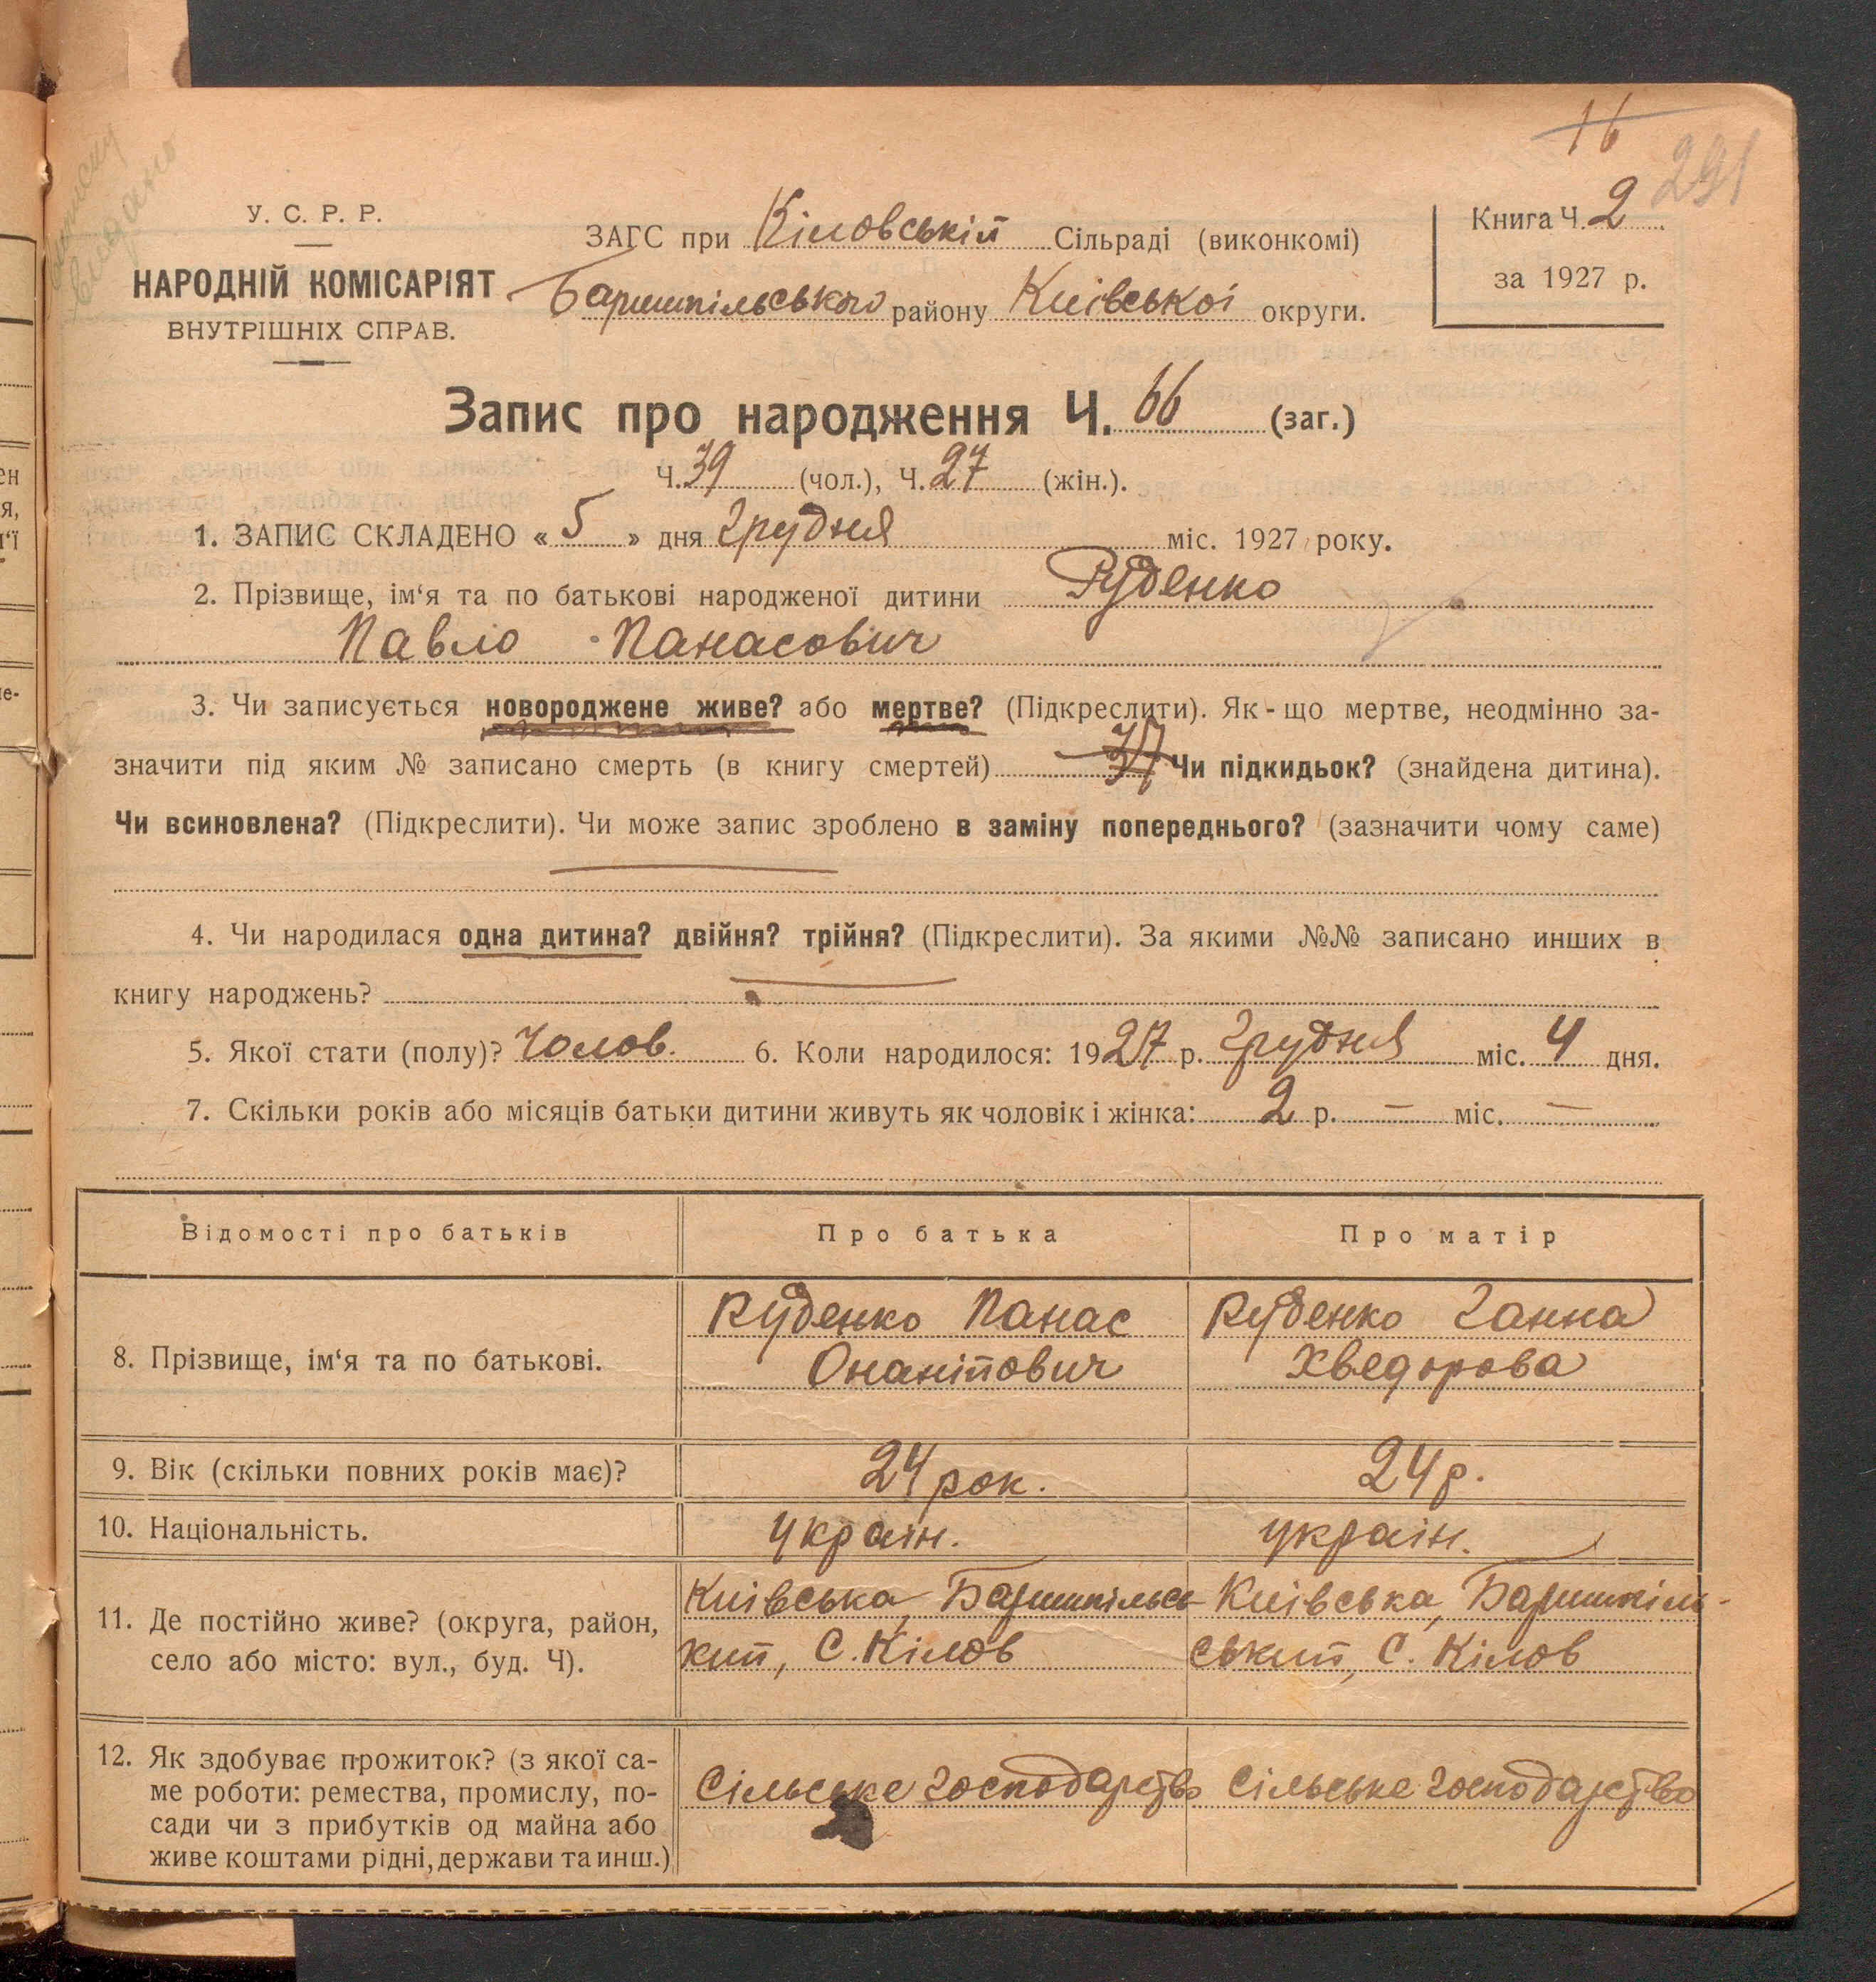 16
291
У. С. Р. Р.
НАРОДНІЙ КОМІСАРІЯТ
ВНУТРІШНІХ СПРАВ.
ЗАГС при Кіловській Сільраді (виконкомі)
Баришпільського району Київської округи.
Книга Ч. 2
за 1927 р.
Запис про народження Ч. 66 (заг.)
Ч. 39 (чол.), Ч. 27 (жін.).
1. ЗАПИС СКЛАДЕНО « 5 » дня Грудня міс. 1927 року.
2. Прізвище, ім‘я та по батькові народженої дитини Руденко
Павло Панасович
3. Чи записується новороджене живе? або мертве? (Підкреслити). Як-що мертве, неодмінно за-
значити під яким № записано смерть (в книгу смертей) Чи підкидьок? (знайдена дитина).
Чи всиновлена? (Підкреслити). Чи може запис зроблено в заміну попереднього? (зазначити чому саме)
4. Чи народилася одна дитина? двійня? трійня? (Підкреслити). За якими №№ записано инших в
книгу народжень?
5. Якої стати (полу)? Чолов. 6. Коли народилося: 1927 р. Грудня міс. 4 дня.
7. Скільки років або місяців батьки дитини живуть як чоловік і жінка: 2 р. — міс. —
Відомості про батьків Про батька Про матір
8. Прізвище, ім‘я та по батькові.
Руденко Панас
Онанійович
Руденко Ганна
Хведорова
9. Вік (скільки повних років має)? 24 рок. 24 р.
10. Національність. Україн. україн.
11. Де постійно живе? (округа, район,
село або місто: вул., буд. Ч).
Київська, Баришпільсь-
кий, С. Кілов
Київська, Баришпіль-
ський, С. Кілов
12. Як здобуває прожиток? (з якої са-
ме роботи: ремества, промислу, по-
сади чи з прибутків од майна або
живе коштами рідні, держави та инш.)
Сільське господарство
Сільське господарство